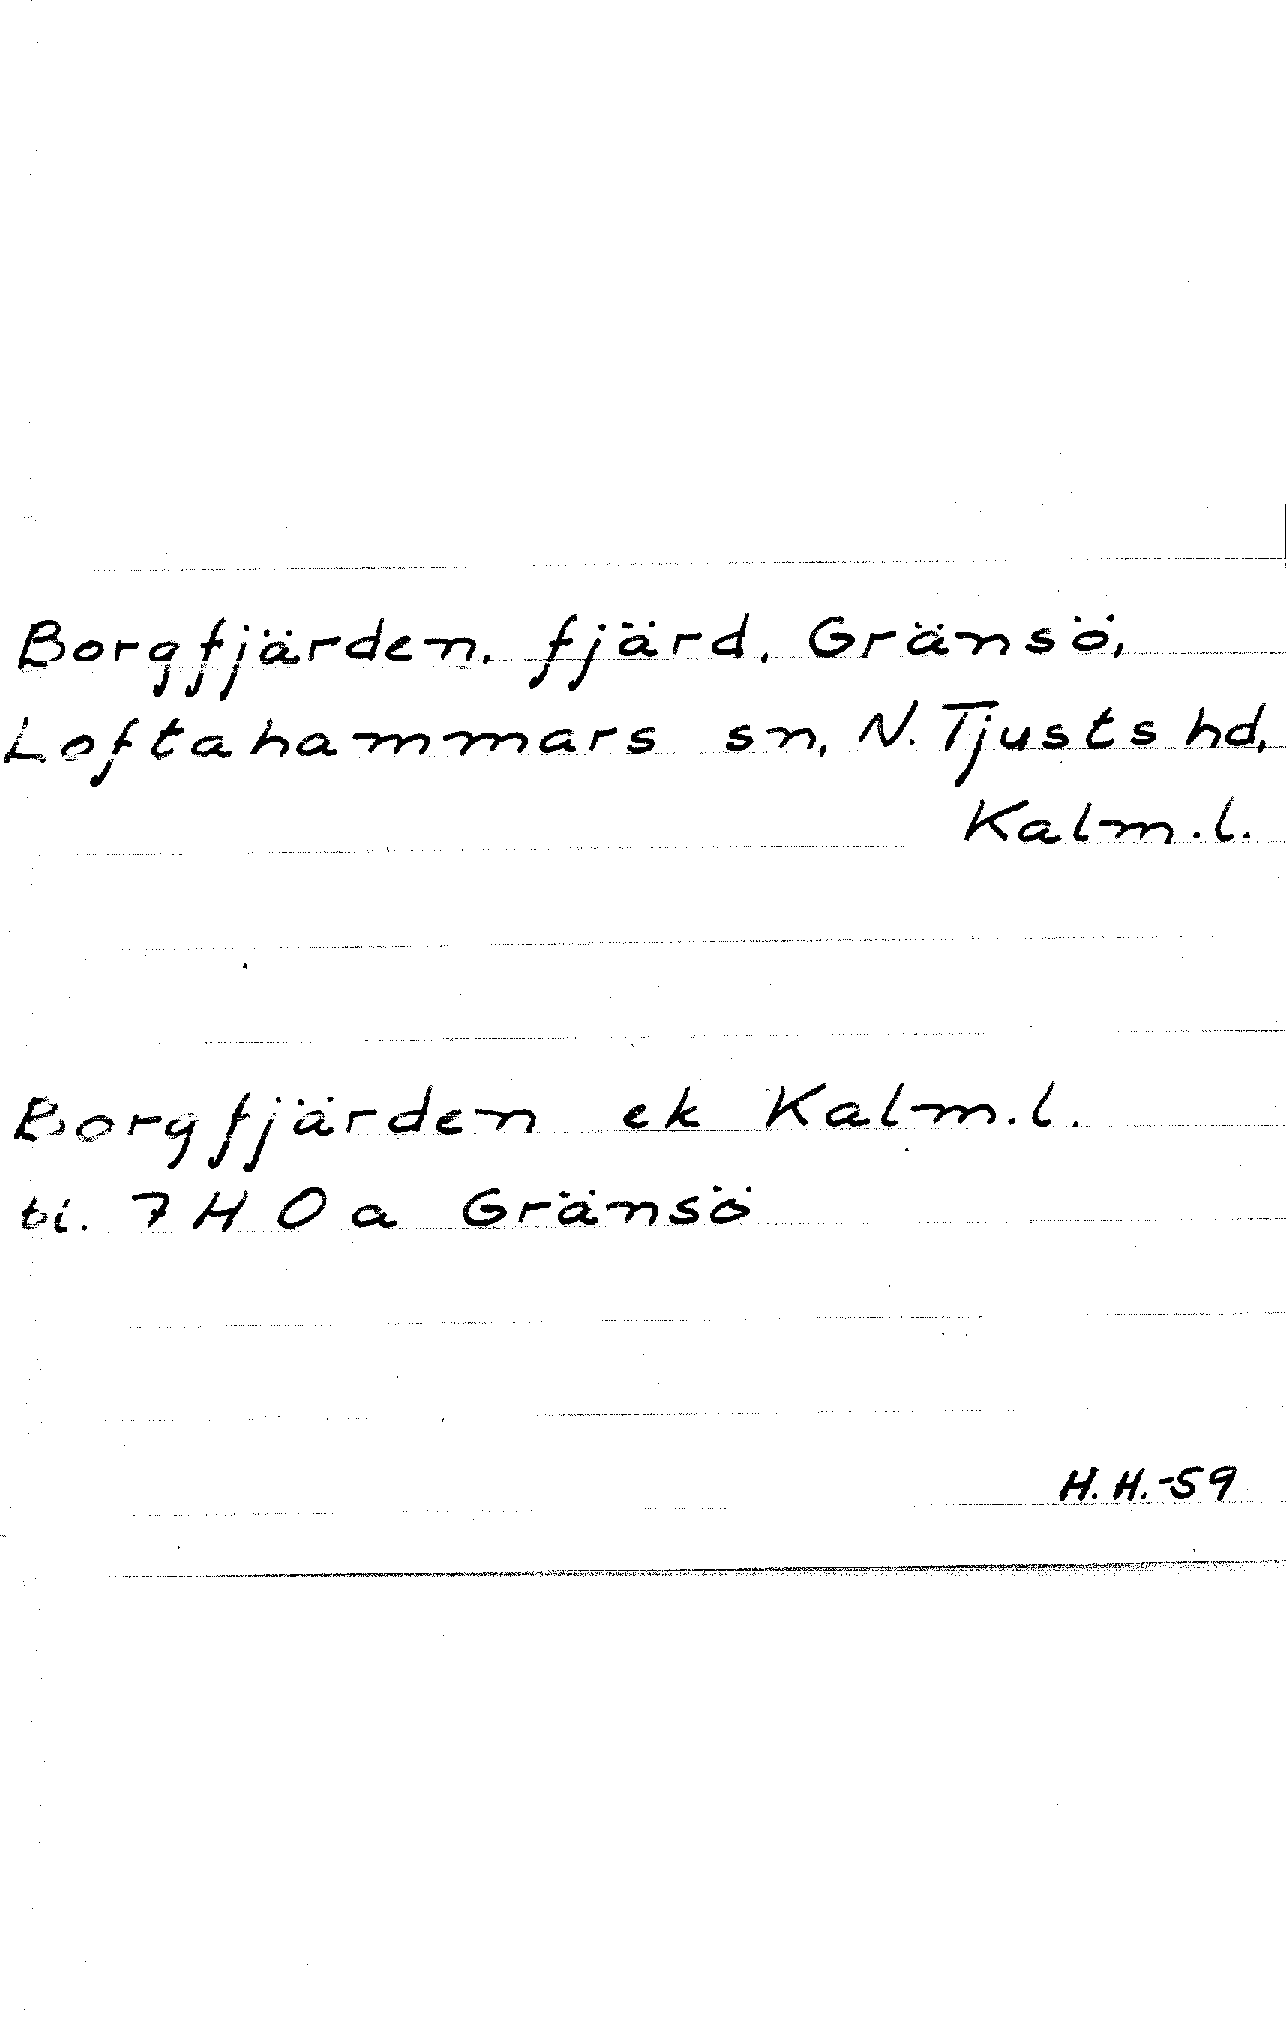 Borgfjärden, fjärd, Gränsö,
Loftahammars sn, N. Tjusts hd,
Kalm.l.
Borgfjärden ek Kalm.l.
bl. 7 H 0 a Gränsö
H.H.-59